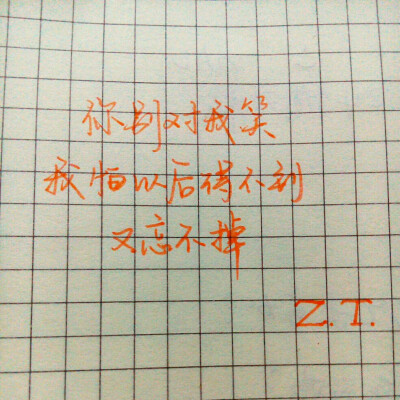 你别对我笑
我怕以后得不到
又忘不掉
Z.T.